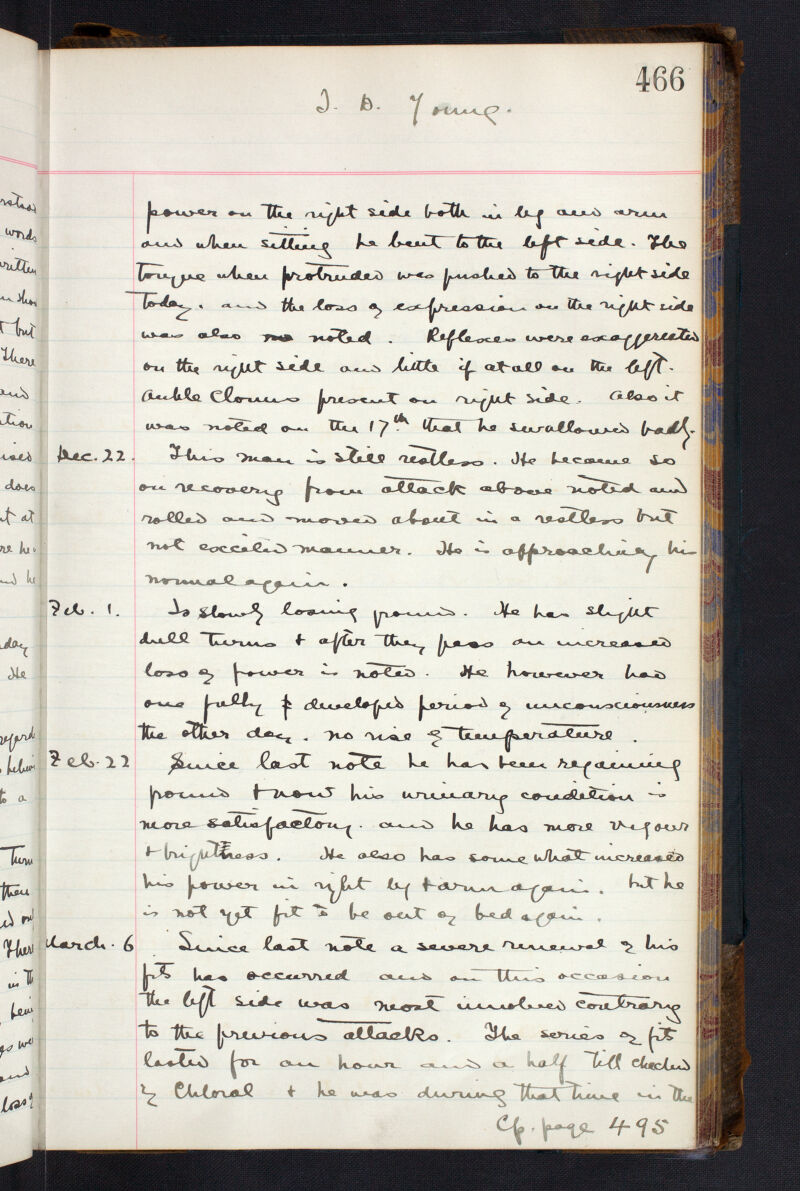 466
J. D. Young.
power on the right side both in leg and arm
and when sitting he bent to the left side. The
tongue when protruded was pushed to the right side
today. and the loss of expression on the right side
was also noted. Reflexes were exaggerated
on the right side and little if at all on the left.
Ankle Clonus present on right side. Also it
was noted on the 17th that he swallowed badly.
Dec. 22. This man is still restless. He became so
on recovery from attack above noted and
rolled and moved about in a restless but
not excited manner. He is approaching his
normal again.
Feb. 1. Is slowly losing ground. He has slight
dull turns & after they pass an increased
loss of power is noted. He however had
one fully developed period of unconsciousness
the other day. no rise of temperature.
Feb. 22 Since last note he has been regaining
ground & now his urinary condition is
more satisfactory. and he has more vigour
& brightness. He also has somewhat increased
his power in right leg & arm again. but he
is not yet fit to be out of bed again.
March. 6 Since last note a severe renewal of his
fits has occurred and on this occasion
the left side was most involved contrary
to the previous attacks. The series of fits
lasted for an hour and a half till checked
by Chloral & he was during that time in the
Cp. page 495
words
written
but
There
and
does
day
He
to a
then
There
and